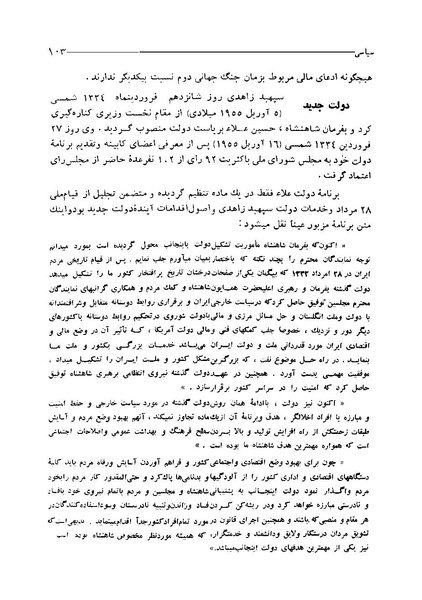 سیاسی ۱۰۳
هیچگونه ادعای مالی مربوط بزمان جنگ جهانی دوم نسبت بیکدیگر ندارند .
دولت جدید
سپهبد زاهدی روز شانزدهم فروردینماه ۱۳۳۴ شمسی
(۵ آوریل ۱۹۵۵ میلادی) از مقام نخست وزیری کناره‌گیری
کرد و بفرمان شاهنشاه ، حسین علاء بریاست دولت منصوب گردید . وی روز ۲۷
فروردین ۱۳۳۴ شمسی (۱۶ آوریل ۱۹۵۵) پس از معرفی اعضای کابینه وتقدیم برنامهٔ
دولت خود به مجلس شورای ملی باکثریت ۹۲ رأی از ۱۰۲ نفرعدهٔ حاضر از مجلس‌رأی
اعتماد گرفت .
برنامهٔ دولت علاء فقط در یك ماده تنظیم گردیده و متضمن تجلیل از قیام‌ملی
۲۸ مرداد وخدمات دولت سپهبد زاهدی واصول‌اقدامات آیندهٔ‌دولت جدید بودواینك
متن برنامهٔ مزبور عیناً نقل میشود :
« اکنون‌که بفرمان شاهنشاه مأموریت تشکیل‌دولت باینجانب محول گردیده است بمورد میدانم
توجه نمایندگان محترم را بچند نکته که باختصار بعیان میآورم جلب نمایم . پس از قیام تاریخی مردم
ایران در ۲۸ امرداد ۱۳۳۲ که بیگمان یکی‌از صفحات‌درخشان تاریخ پرافتخار کشور ما را تشکیل میدهد
دولت گذشته بفرمان و رهبری اعلیحضرت همایون‌شاهنشاه و کمك مردم و همکاری گرانبهای نمایندگان
محترم مجلسین توفیق حاصل کردکه درسیاست خارجی‌ایران و برقراری روابط دوستانه متقابل وشرافتمندانه
با دولت وملت انگلستان و حل مسائل مرزی و مالی‌بادولت شوروی درتحکیم روابط دوستانه باکشورهای
دیگر دور و نزدیك ، خصوصاً جلب کمکهای فنی و مالی دولت آمریکا ، کـه تأثیر آن در وضع مالی و
اقتصادی ایران مورد قدردانی ملت و دولت ایـران مـی‌باشد خدمـات بـزرگـی بکشور و ملت مـا
بنمایـد . در راه حـل موضوع نفت ، که بزرگترین‌مشکل کشور و ملـت ایـران را تشکیـل میداد ،
موفقیت مهمـی بدست آورد . همچنین در عهـددولت گذشته نیروی انتظامی برهبری شاهنشاه توفیق
حاصل کرد که امنیت را در سراسر کشور برقرارسازد . »
« اکنون نیز دولت ، باادامهٔ همان روش‌دولت گذشته در مورد سیاست خارجی و حفظ امنیت
و مبارزه با افراد اخلالگر ، هدف وبرنامهٔ آن ازیك‌ماده تجاوز نمیکند، آنهم بهبود وضع مردم و آسایش
طبقات زحمتکش از راه افزایش تولید و بالا بـردن‌سطح فرهنـگ و بهداشت عمومی واصلاحات اجتماعی
است که همواره مهمترین هدف شاهنشاه ما بوده است . »
« چون برای بهبود وضع اقتصادی واجتماعی‌کشور و فراهم آوردن آسایش ورفاه مردم باید کلیهٔ
دستگاههای اقتصادی و اداری کشور را از آلودگیهاو بدنامی‌ها پاك‌کرد و حتی‌المقدور کار مردم رابخود
مردم واگـذار نمود دولت اینجانـب به پشتیبانی شاهنشاه و مجلسین و مردم باتمام نیروی خود بافساد
و نادرستی مبارزه خواهد کرد ودر ریشه‌کن کردن‌فساد وراندن‌وتنبیه نادرستان وسوءاستفاده‌کنندگان‌در
هر مقام و منصبی‌که باشند وهمچنین اجرای قانون در مورد تمام‌افراد‌کشورجداً اقدام‌مینماید . بدیهی‌است‌که
تشویق مردان درستکار ولایق ودانشمند و خدمتگزار، که همیشه موردنظر مخصوص شاهنشاه بوده است
نیز یکی از مهمترین هدفهای دولت اینجانب‌میباشد.»